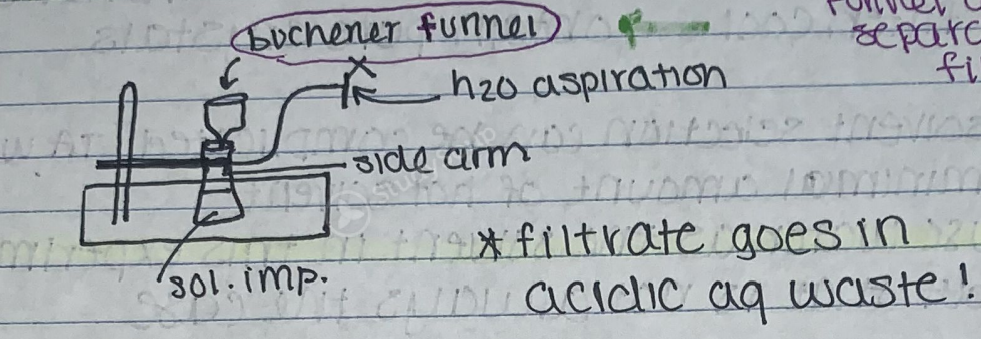 buchener funnel
separ
fi
h2o aspiration
side arm
sol. imp.
* filtrate goes in
acidic aq waste!